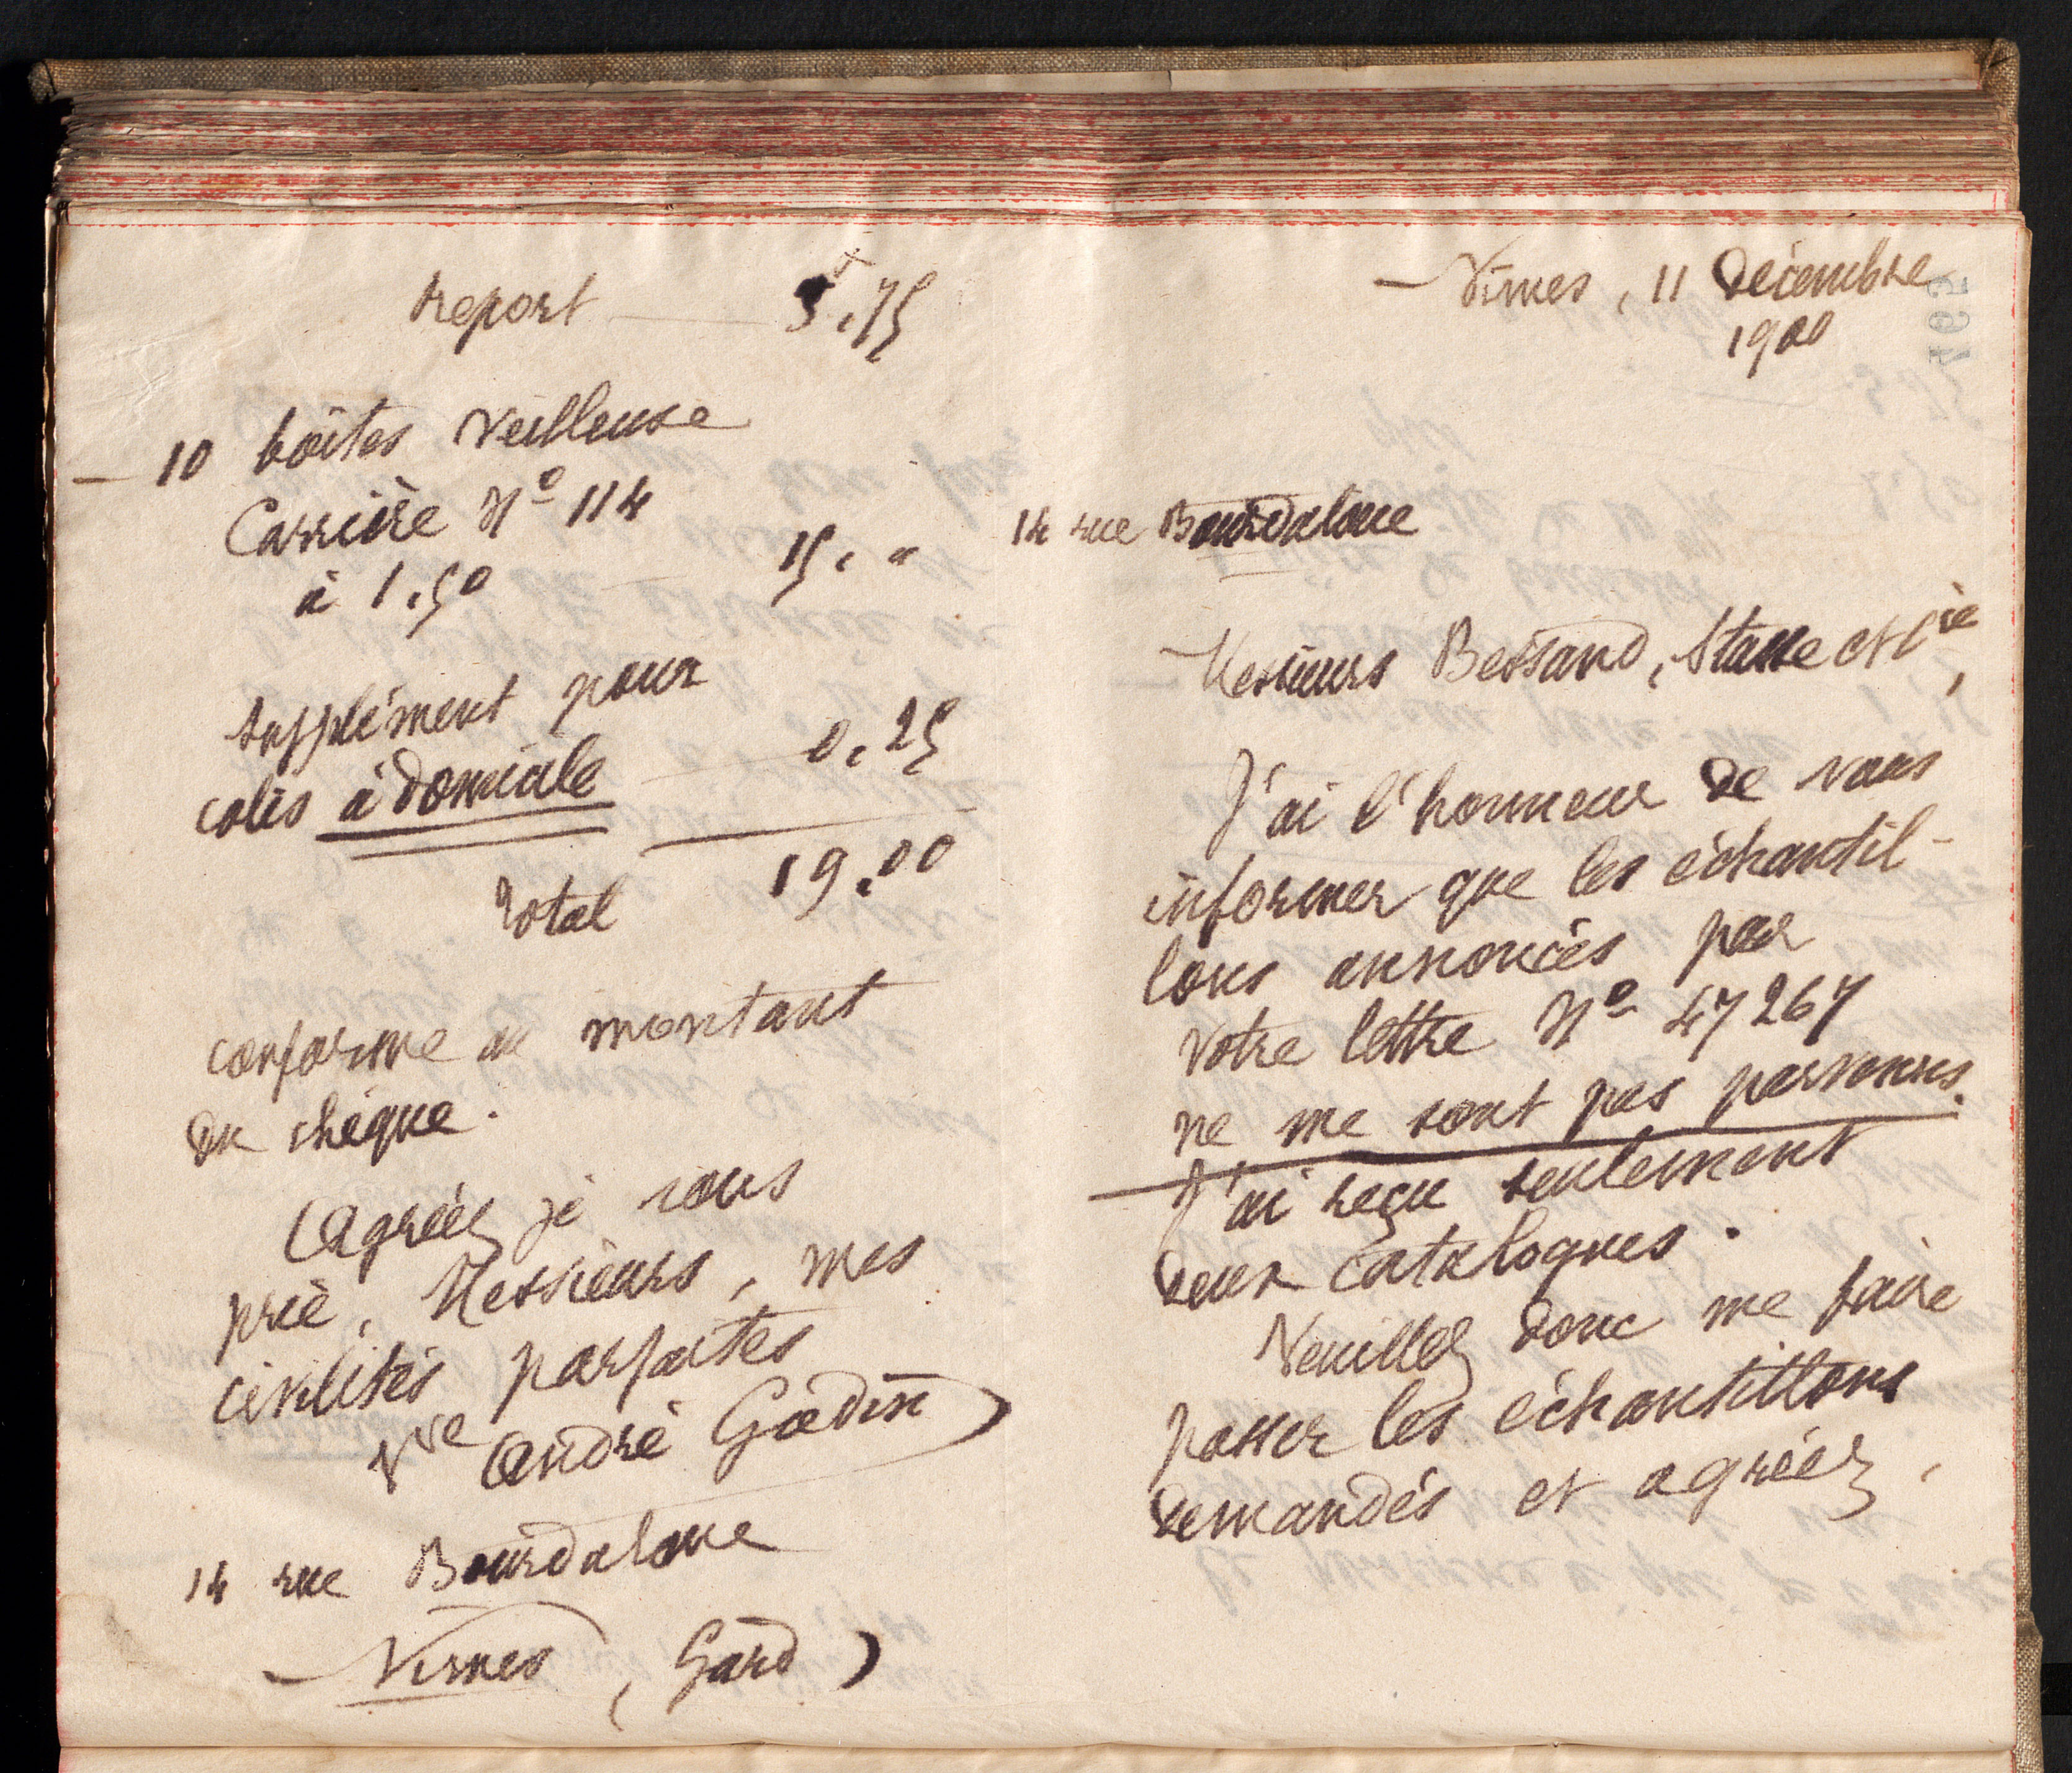 report 3.75
10 boîtes Veilleuse
Carrière N° 114
à 1.50 15. "
supplément pour
colis à domicile 0.25
Total 19.00
conforme au montant
du chèque.
Agréez je vous
prie, Messieurs, mes
civilités parfaites
Vve André Godin
14 rue Bourdaloue
Nîmes (Gard)
Nîmes, 11 décembre
1900
14 rue Bourdaloue
Messieurs Bessand, Stasse et Cie,
J'ai l'honneur de vous
informer que les échantil-
lons annoncés par
votre lettre N° 47267
ne me sont pas parvenus.
J'ai reçu seulement
deux catalogues.
Veuillez donc me faire
passer les échantillons
demandés et agréez,